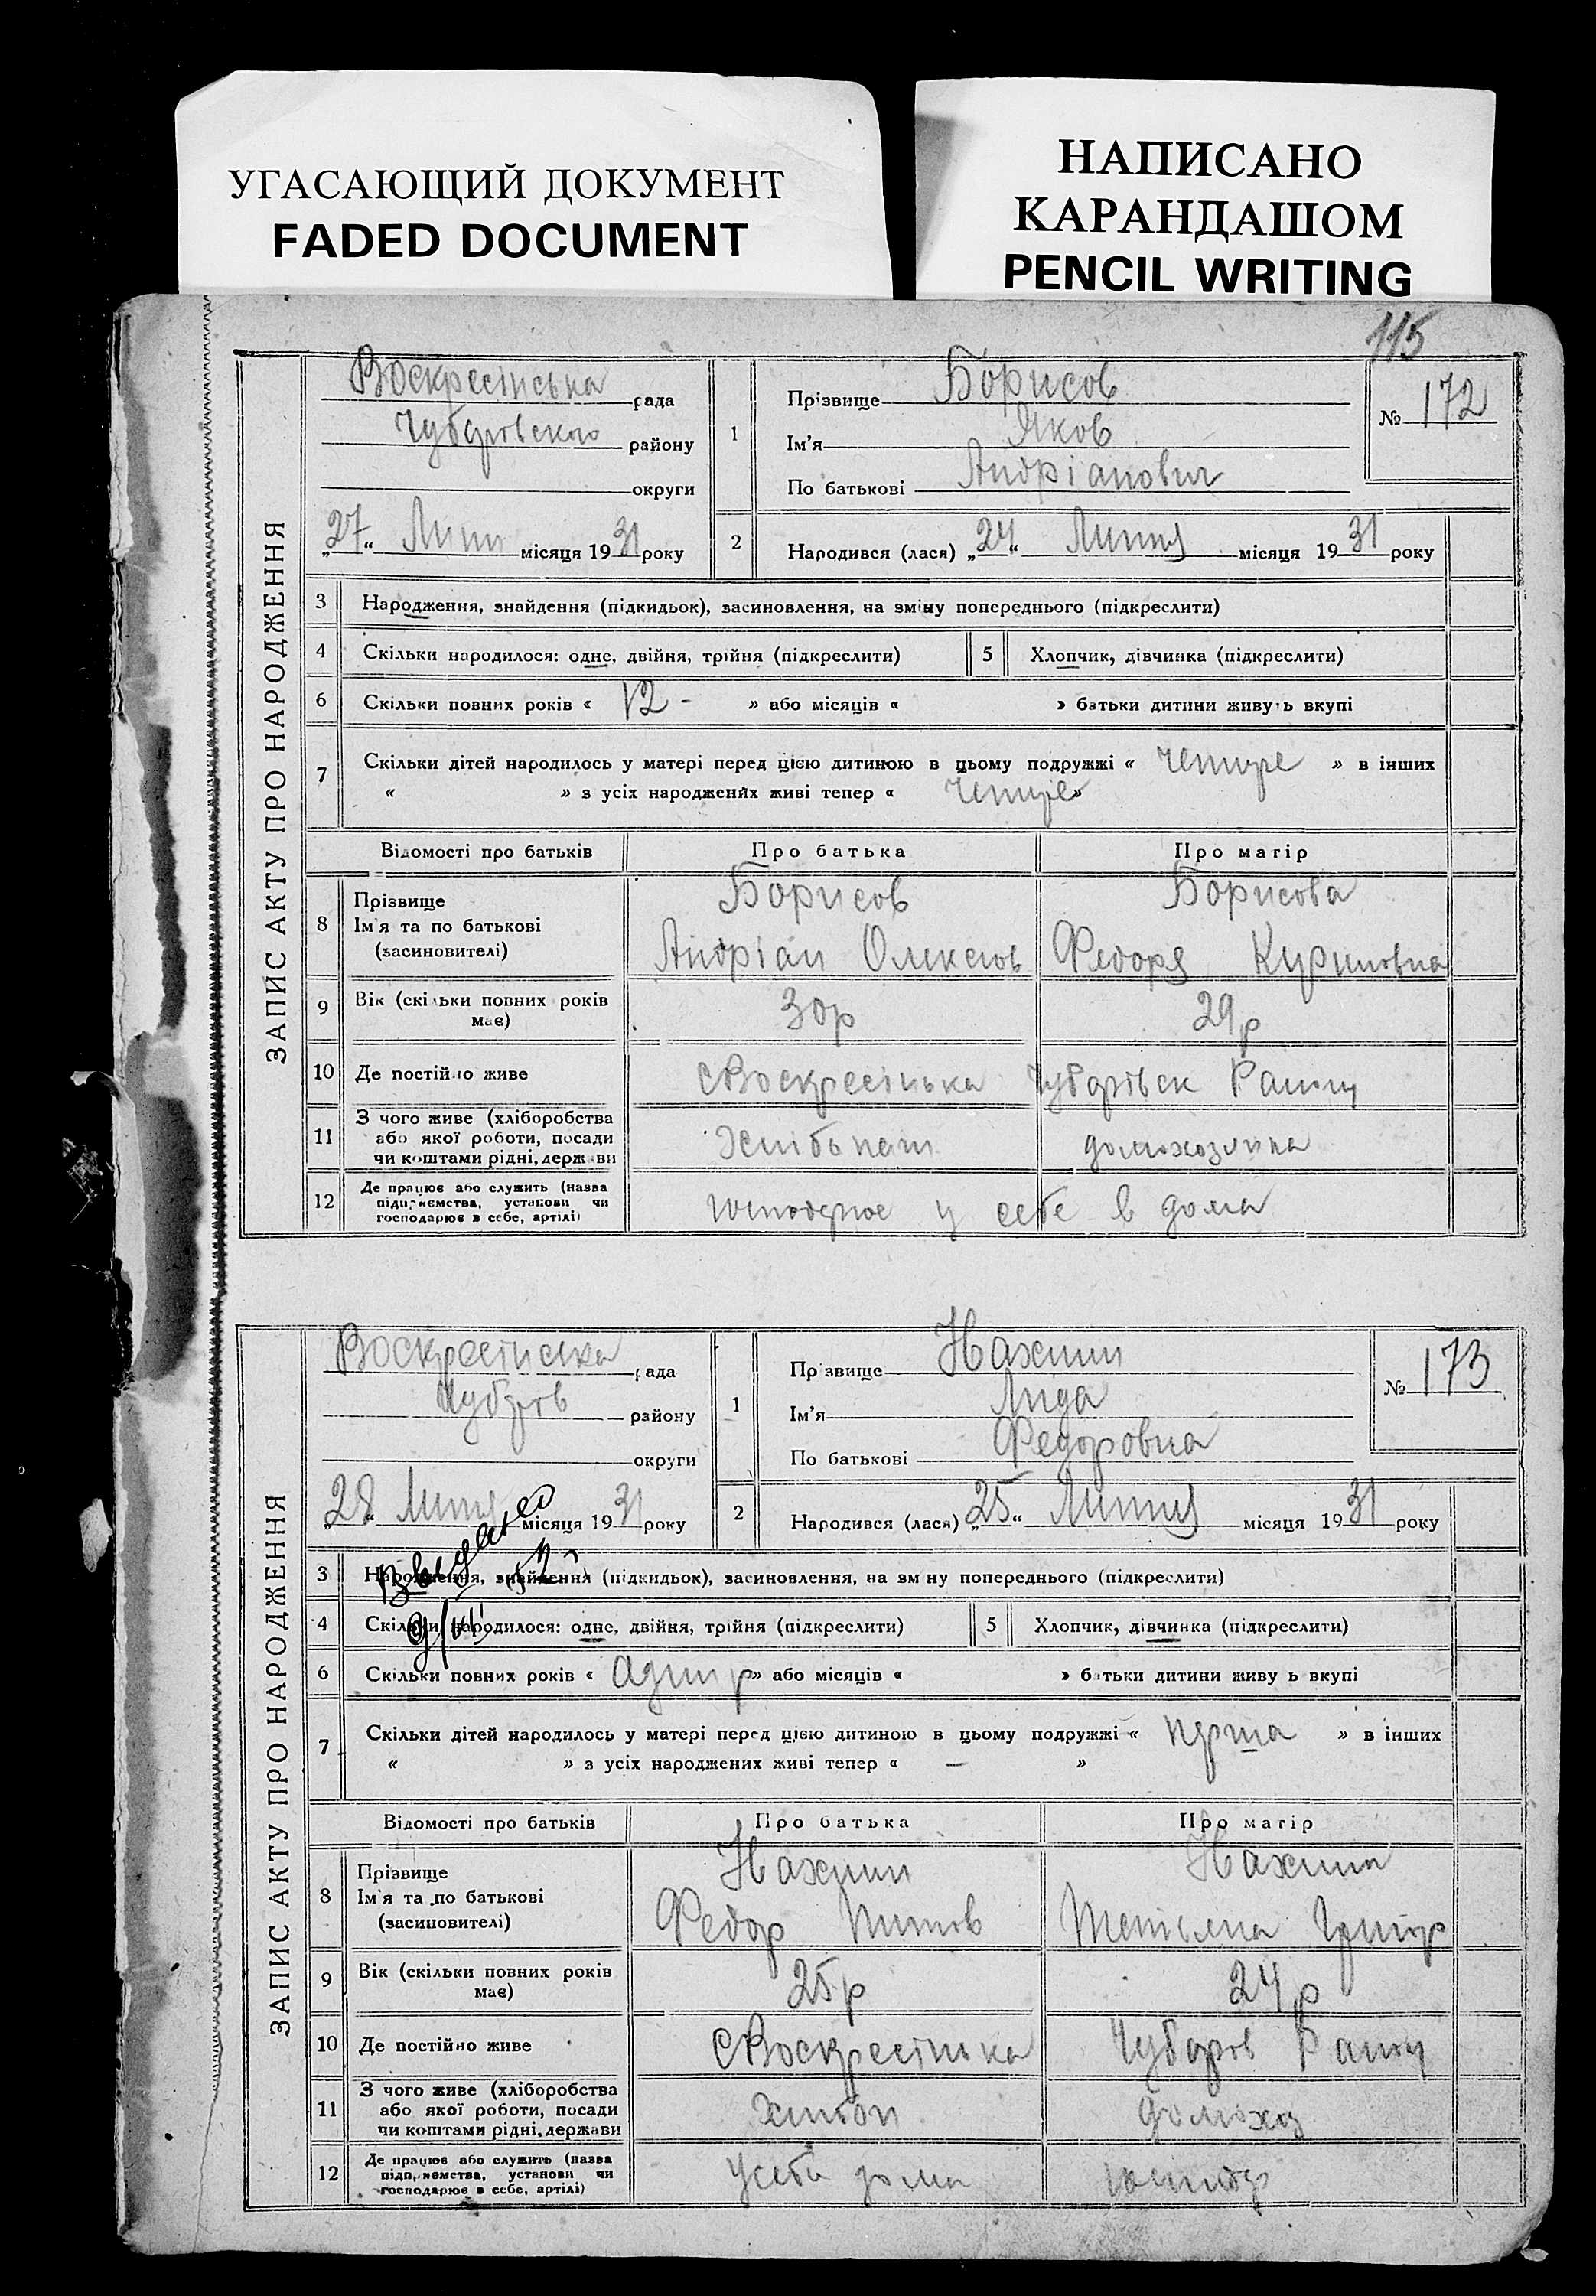 УГАСАЮЩИЙ ДОКУМЕНТ
FADED DOCUMENT
НАПИСАНО
КАРАНДАШОМ
PENCIL WRITING
115
ЗАПИС АКТУ ПРО НАРОДЖЕННЯ
Воскресінська рада
Чубарівського району
округи
„27“ Липня місяця 1931 року
1 Прізвище Борисов
Ім'я Яков
По батькові Андріанович
№ 172
2 Народився (лася) „24“ Липня місяця 1931 року
3 Народження, знайдення (підкидьок), засиновлення, на зміну попереднього (підкреслити)
4 Скільки народилося: одне, двійня, трійня (підкреслити) 5 Хлопчик, дівчинка (підкреслити)
6 Скільки повних років « 12 - » або місяців « » батьки дитини живуть вкупі
7 Скільки дітей народилось у матері перед цією дитиною в цьому подружжі « четире » в інших
« » з усіх народжених живі тепер « четире »
Відомості про батьків Про батька Про матір
8 Прізвище Борисов Борисова
Ім'я та по батькові
(засиновителі) Андріан Олексіов Федоря Кириловна
9 Вік (скільки повних років має) 30р 29р
10 Де постійно живе с Воскресінька Чубарівськ Району
11 З чого живе (хліборобства
або якої роботи, посади
чи коштами рідні, держави Хлібопаш домохозяйка
12 Де працює або служить (назва
підприємства, установи чи
господарює в себе, артілі) господарює у себе в дома
ЗАПИС АКТУ ПРО НАРОДЖЕННЯ
Воскресінська рада
Чубарів району
округи
„28“ Липня місяця 1931 року
1 Прізвище Нахшин
Ім'я Лида
По батькові Федоровна
№ 173
2 Народився (лася) „25“ Липня місяця 1931 року
Выдано
3 Народження, знайдення (підкидьок), засиновлення, на зміну попереднього (підкреслити)
4 Скільки народилося: одне, двійня, трійня (підкреслити) 5 Хлопчик, дівчинка (підкреслити)
6 Скільки повних років « адин р » або місяців « » батьки дитини живуть вкупі
7 Скільки дітей народилось у матері перед цією дитиною в цьому подружжі « перша » в інших
« » з усіх народжених живі тепер « — »
Відомості про батьків Про батька Про матір
8 Прізвище Нахшин Нахшина
Ім'я та по батькові
(засиновителі) Федор Титов Тетіяна Григор
9 Вік (скільки повних років має) 25р 24р
10 Де постійно живе с Воскресінька Чубарів Району
11 З чого живе (хліборобства
або якої роботи, посади
чи коштами рідні, держави Хлібоп домохоз
12 Де працює або служить (назва
підприємства, установи чи
господарює в себе, артілі) у себе дома господар